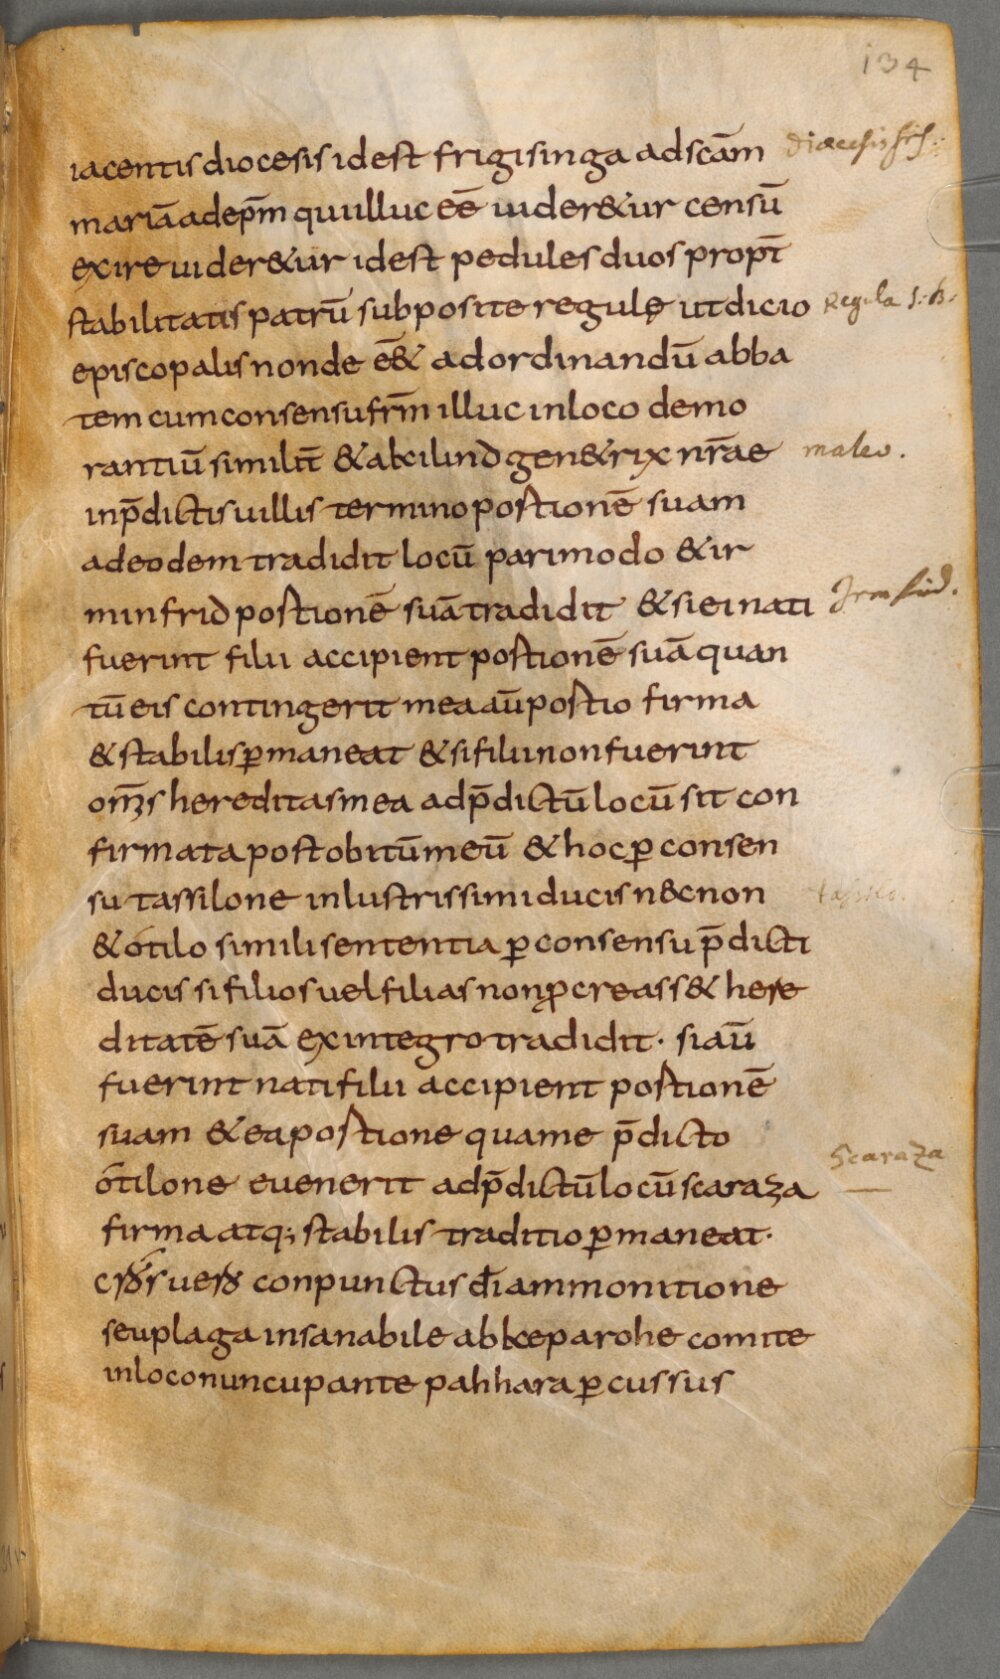 134
iacentis diocesis idest frigisinga ad scām
diocesis fris.
mariā ad ep̄m qui illuc eē uider&ur censū
exire uider&ur idest pedules duos propt̄
stabilitatis patrū subposite regulę ut dicio
Regula S. B.
episcopalis non de ē& ad ordinandū abba
tem cum consensu fr̄m illuc in loco demo
rantiū similit̄ & alcilind gen&rix nr̄ae
mater.
in p̄dictis uillis termino postionē suam
ad eodem tradidit locū pari modo & ir
minfrid postionē suā tradidit & si ei nati
Irmfrid.
fuerint filii accipient postionē suā quan
tū eis contingerit mea aū postio firma
& stabilis ꝑmaneat & si filii non fuerint
om̄s hereditas mea ad p̄dictū locū sit con
firmata post obitū meū & hoc ꝑ consen
su tassilone inlustrissimi ducis n&cnon
tassilo.
& otilo simili sententia ꝑ consensu p̄dicti
ducis si filios uel filias non ꝓcreass& here
ditatē suā ex integro tradidit· si aū
fuerint nati filii accipient postionē
suam & ea postione quam e p̄dicto
otilone euenerit ad p̄dictū locū scaraza
Scaraza
firma atq; stabilis traditio ꝑmaneat·
conpunctus dī ammonitione
seu plaga insanabile ab kceparohe comite
in loco nuncupante pahhara ꝑcussus